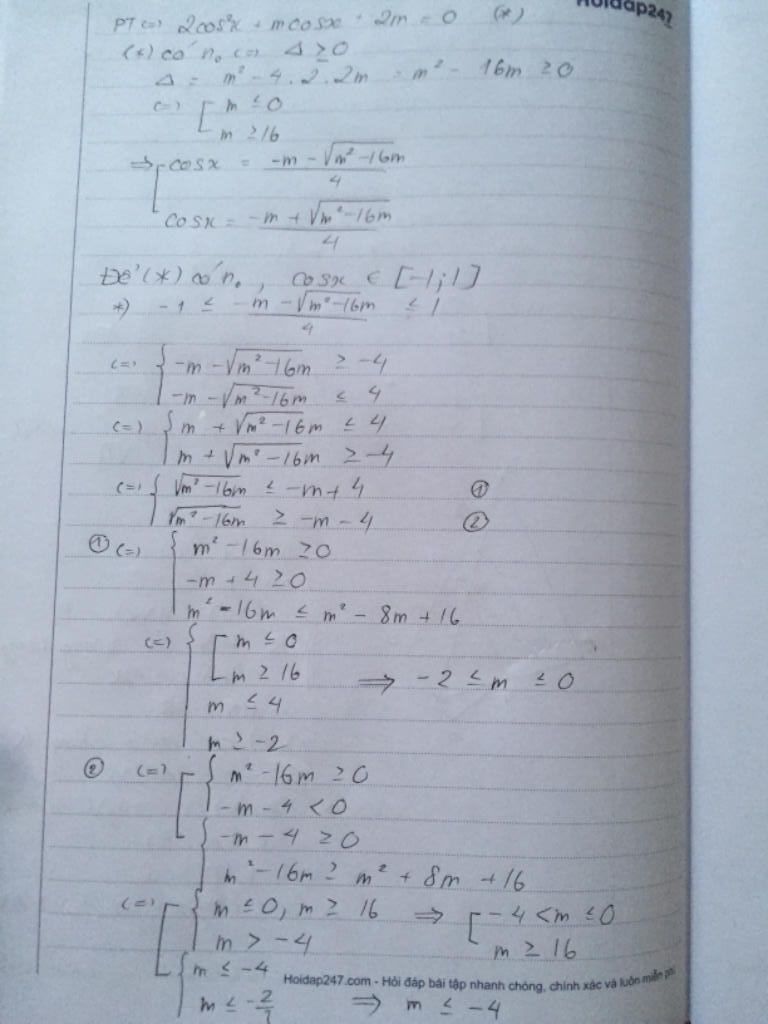 Hoidap247
PT (=) 2cos²x + mcosx + 2m = 0 (*)
(*) có n₀ (=) Δ ≥ 0
Δ = m² - 4.2.2m = m² - 16m ≥ 0
(=) [ m ≤ 0
m ≥ 16
=> [ cosx = (-m - √(m² - 16m))/4
cosx = (-m + √(m² - 16m))/4
Để (*) có n₀, cosx ∈ [-1;1]
*) -1 ≤ (-m - √(m² - 16m))/4 ≤ 1
(=) { -m - √(m² - 16m) ≥ -4
-m - √(m² - 16m) ≤ 4
(=) { m + √(m² - 16m) ≤ 4
m + √(m² - 16m) ≥ -4
(=) { √(m² - 16m) ≤ -m + 4 ①
√(m² - 16m) ≥ -m - 4 ②
① (=) { m² - 16m ≥ 0
-m + 4 ≥ 0
m² - 16m ≤ m² - 8m + 16
(=) { [ m ≤ 0
m ≥ 16 => -2 ≤ m ≤ 0
m ≤ 4
m ≥ -2
② (=) [ { m² - 16m ≥ 0
-m - 4 < 0
{ -m - 4 ≥ 0
m² - 16m ≥ m² + 8m + 16
(=) [ { m ≤ 0, m ≥ 16 => [ -4 < m ≤ 0
m > -4 m ≥ 16
{ m ≤ -4
Hoidap247.com - Hỏi đáp bài tập nhanh chóng, chính xác và luôn miễn phí
m ≤ -2/3 => m ≤ -4